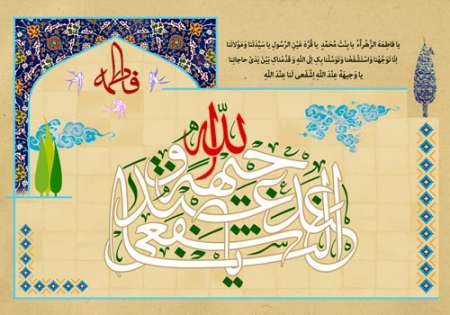 یا فاطِمَةَ الزَّهْراَّءُ یا بِنْتَ مُحَمَّدٍ یا قُرَّةَ عَیْنِ الرَّسُولِ یا سَیِّدَتَنا وَمَوْلاتَنا
اِنّا تَوَجَّهْنا وَاسْتَشْفَعْنا وَتَوَسَّلْنا بِکِ اِلَى اللَّهِ وَ قَدَّمْناکِ بَیْنَ یَدَىْ حاجاتِنا
یا وَجیهَةً عِنْدَ اللَّهِ اِشْفَعى لَنا عِنْدَ اللَّهِ
فاطمه
یا وجیهة عند الله اشفعی لنا عند الله